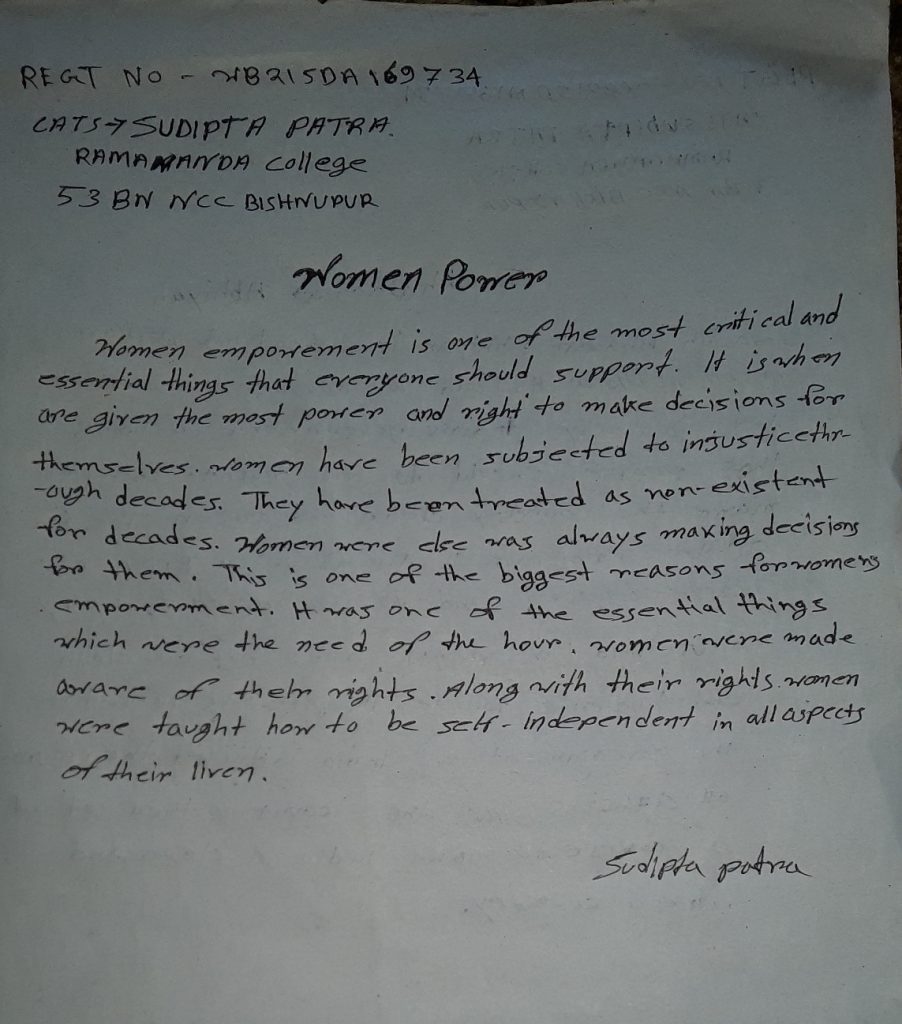 REGT NO - WB21SDA169734
CATS→ SUDIPTA PATRA.
RAMAMANDA College
53 BN NCC BISHNUPUR
Women Power
Women empowement is one of the most critical and
essential things that everyone should support. It is when
are given the most power and right to make decisions for
themselves. women have been subjected to injusticethr-
-ough decades. They have been treated as non-existent
for decades. Women were else was always making decisions
for them. This is one of the biggest reasons for womens
empowerment. It was one of the essential things
which were the need of the hour. women were made
aware of their rights. Along with their rights women
were taught how to be self-independent in all aspects
of their liven.
Sudipta patra